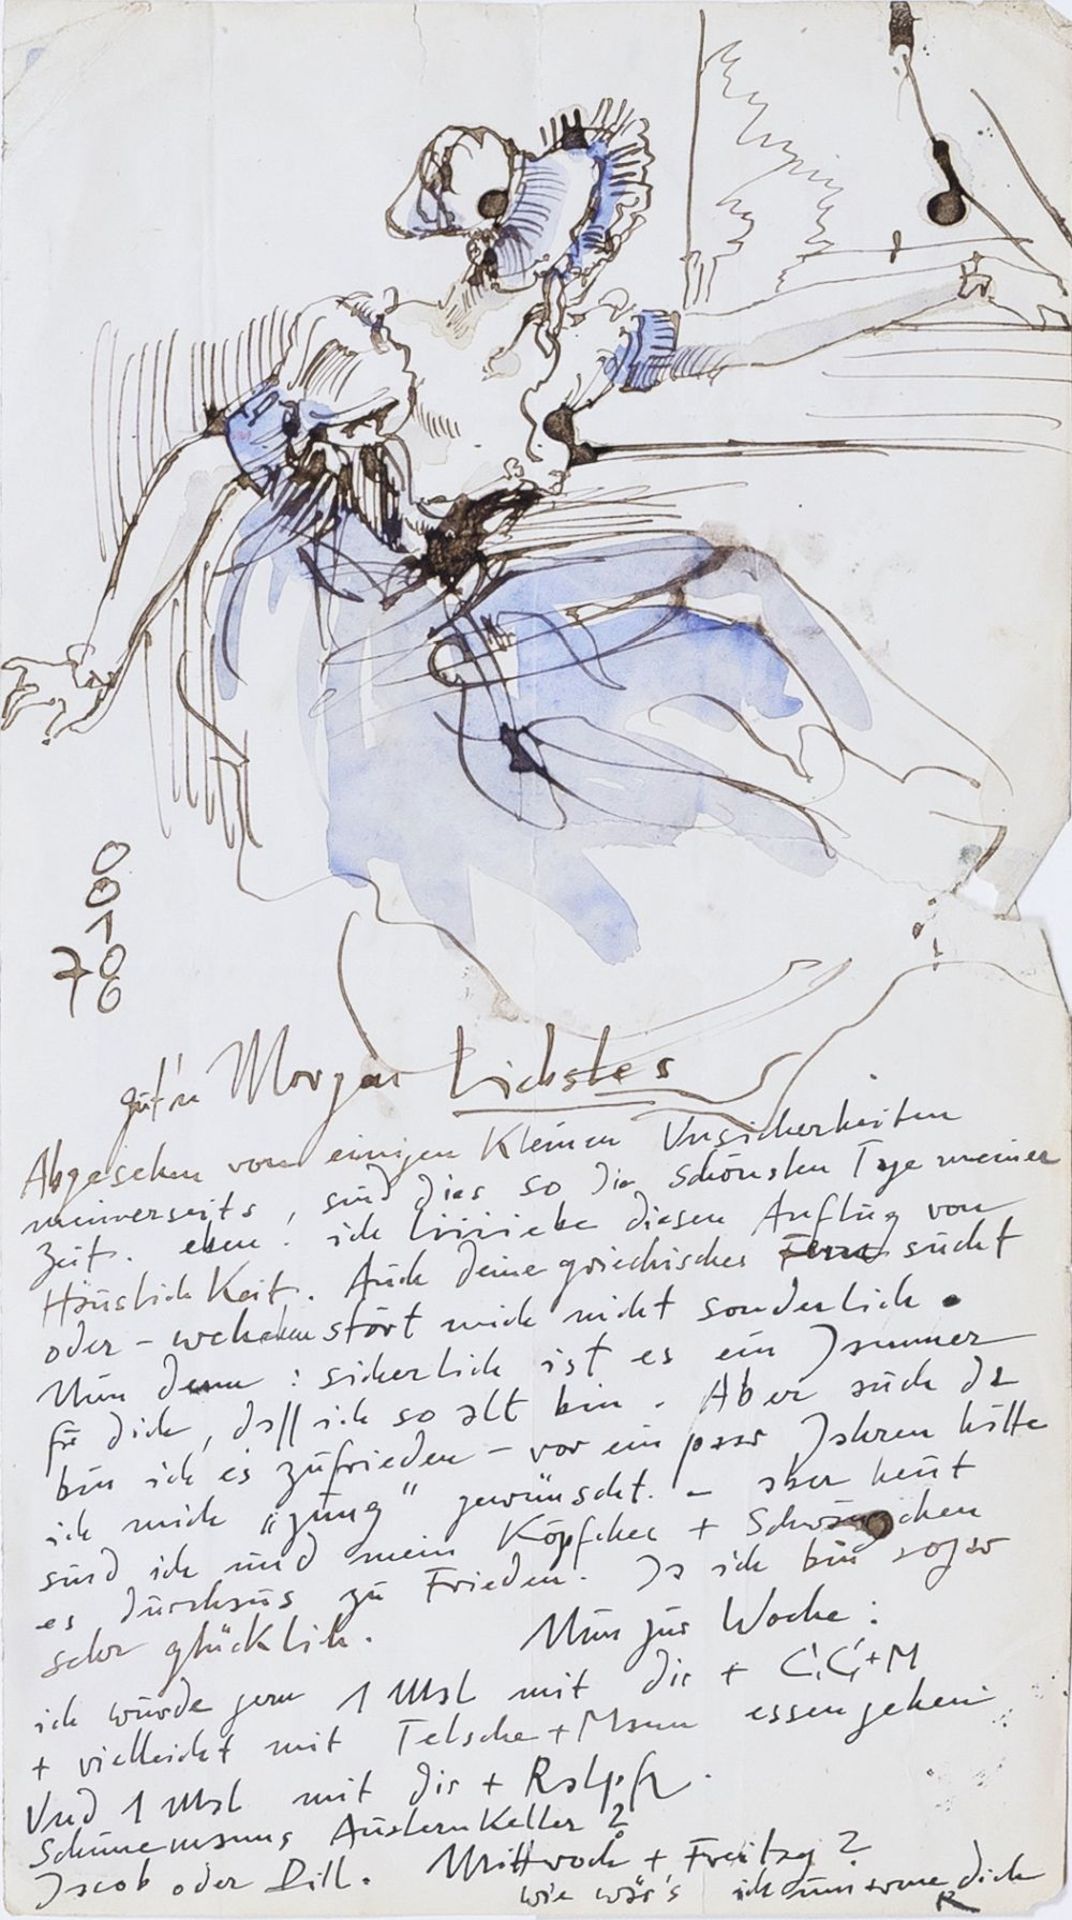 0
8
1
0
76
gut'n Morgen Liebstes
Abgesehen von einigen Kleinen Unsicherheiten
meinerseits, sind dies so die schönsten Tage meiner
Zeit. eben! ich liiiiebe diesen Anflug von
Häuslichkeit. Auch deine griechisches sucht
oder – stört mich nicht sonderlich.
Nun denn: sicherlich ist es ein Jammer
für dich, daß ich so alt bin. Aber auch da
bin ich es zufrieden – vor ein paar Jahren hätte
ich mich „jung“ gewünscht. – aber heut
sind ich und mein Köpfchen + Schwänzchen
es durchaus zu Frieden. Ja ich bin sogar
sehr glücklich. Nun zur Woche:
ich würde gern 1 Mal mit dir + C, C, + M
+ vielleicht mit Telsche + Mann essen gehen
Und 1 Mal mit dir + Ralph.
Schümemanns Austernkeller?
Jacob oder Dill. Mittwoch + Freitag?
wie wär's ich umarme dich